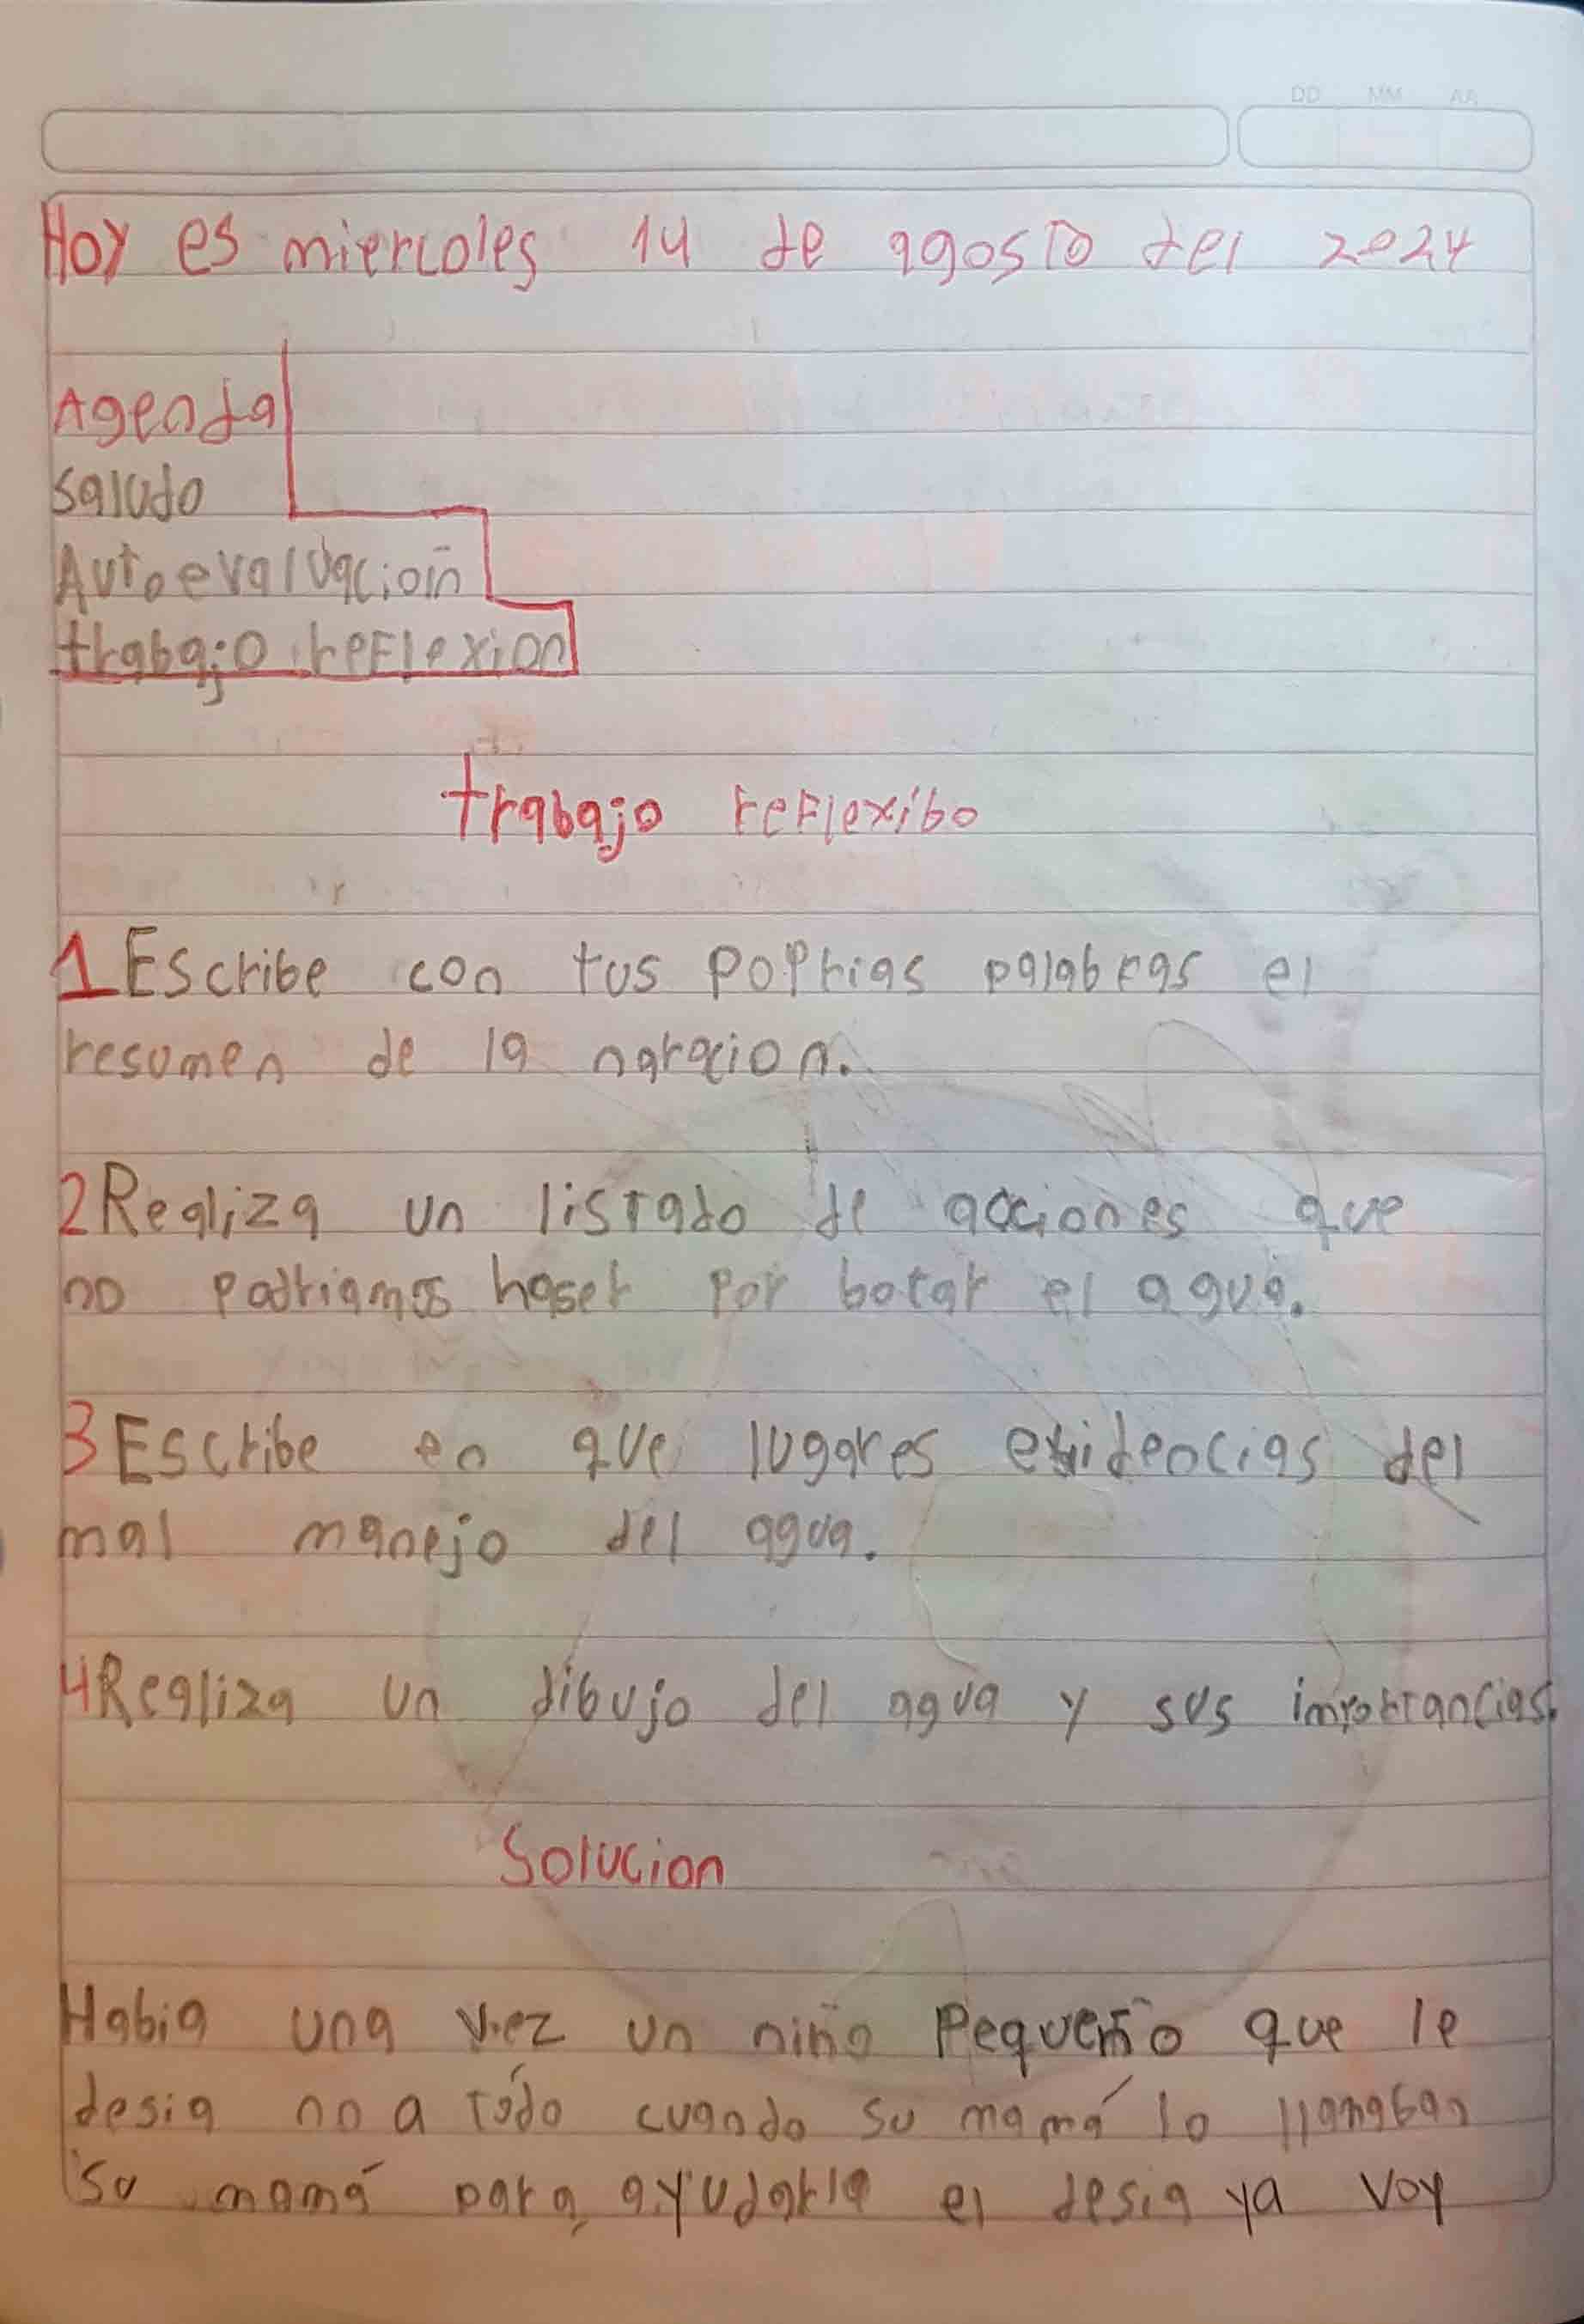 DD MM AA
Hoy es miercoles 14 de agosto del 2024
Agenda
saludo
Autoevaluacioin
trabajo reflexion
trabajo reflexibo
1 Escribe con tus poprias palabras el
resumen de la naracion.
2 Realiza un listado de acciones que
no podriamos haser por botar el agua.
3 Escribe en que lugares evidencias del
mal manejo del agua.
4 Realiza un dibujo del agua y sus importancias.
Solucion
Habia una vez un niño pequeño que le
desia no a todo cuando su mamá lo llamaban
su mamá para ayudarle el desia ya voy